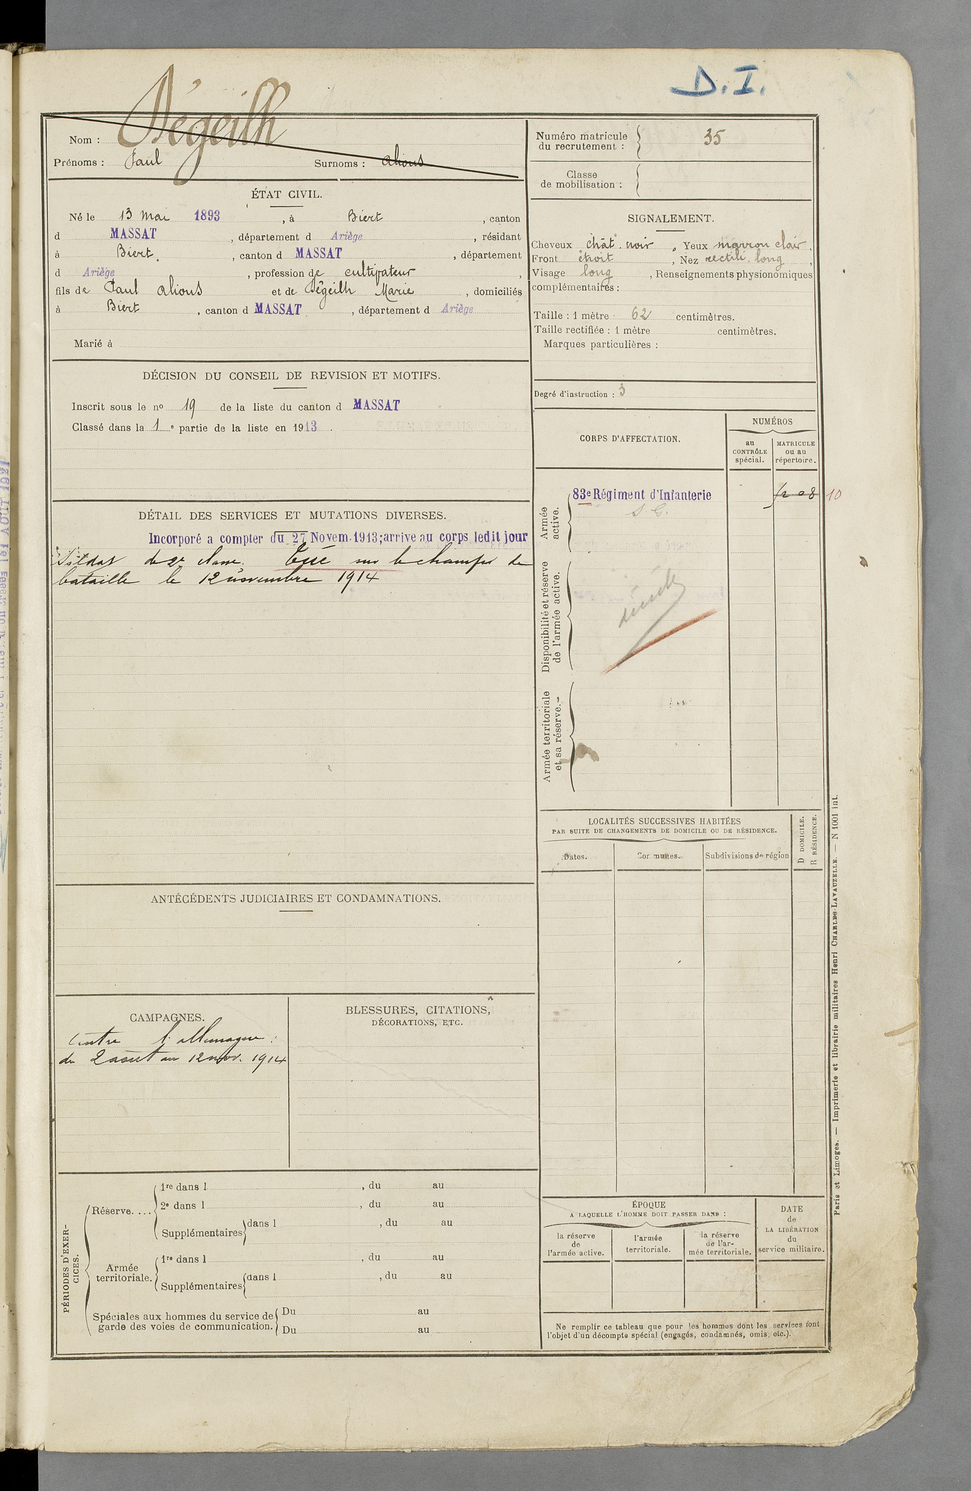 D.I.
Nom : Dégeilh
Prénoms : Paul Surnoms : alious
Numéro matricule du recrutement : 35
Classe de mobilisation :
ÉTAT CIVIL.
Né le 13 mai 1893, à Biert, canton
d MASSAT, département d Ariège, résidant
à Biert, canton d MASSAT, département
d Ariège, profession de cultivateur
fils de Paul alious et de Dégeilh Marie, domiciliés
à Biert, canton d MASSAT, département d Ariège
Marié à
SIGNALEMENT.
Cheveux chât. noir. Yeux marron clair.
Front étroit, Nez rectil. long,
Visage long, Renseignements physionomiques
complémentaires :
Taille : 1 mètre 62 centimètres.
Taille rectifiée : 1 mètre centimètres.
Marques particulières :
Degré d'instruction : 3
DÉCISION DU CONSEIL DE REVISION ET MOTIFS.
Inscrit sous le no 19 de la liste du canton d MASSAT
Classé dans la 1e partie de la liste en 1913.
CORPS D'AFFECTATION.
NUMÉROS
au CONTRÔLE spécial.
MATRICULE ou au répertoire.
Armée active.
83e Régiment d'Infanterie
S.G.
10
Disponibilité et réserve de l'armée active.
décédé
Armée territoriale et sa réserve.
DÉTAIL DES SERVICES ET MUTATIONS DIVERSES.
Incorporé à compter du 27 Novem. 1913; arrivé au corps ledit jour
Soldat de 2e classe. Tué sur le champs de
bataille le 12 novembre 1914
LOCALITÉS SUCCESSIVES HABITÉES
PAR SUITE DE CHANGEMENTS DE DOMICILE OU DE RÉSIDENCE.
D DOMICILE.
R RÉSIDENCE.
Dates. Communes. Subdivisions de région
ANTÉCÉDENTS JUDICIAIRES ET CONDAMNATIONS.
CAMPAGNES.
Contre l'allemagne :
du 2 aout au 12 nov. 1914
BLESSURES, CITATIONS,
DÉCORATIONS, ETC.
PÉRIODES D'EXERCICES.
Réserve....
1re dans l , du au
2e dans l , du au
Supplémentaires dans l , du au
Armée territoriale.
1re dans l , du au
Supplémentaires dans l , du au
Spéciales aux hommes du service de garde des voies de communication.
Du au
Du au
ÉPOQUE
A LAQUELLE L'HOMME DOIT PASSER DANS :
la réserve de l'armée active.
l'armée territoriale.
la réserve de l'armée territoriale.
DATE de LA LIBÉRATION du service militaire.
Ne remplir ce tableau que pour les hommes dont les services font
l'objet d'un décompte spécial (engagés, condamnés, omis, etc.).
Paris et Limoges. — Imprimerie et librairie militaires Henri CHARLES-LAVAUZELLE. — N 1001 int.